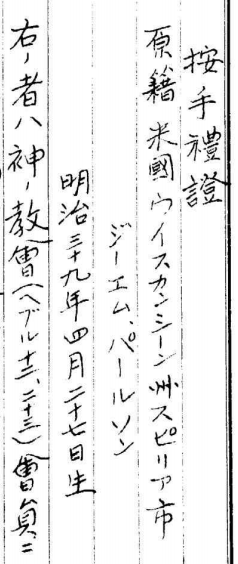 按手禮證
原籍 米國ウイスカンシーン州スピリア市
ジーエム、パールソン
明治三十九年四月二十七日生
右ノ者ハ神ノ教會(ヘブル十二、二十三)會員ニ